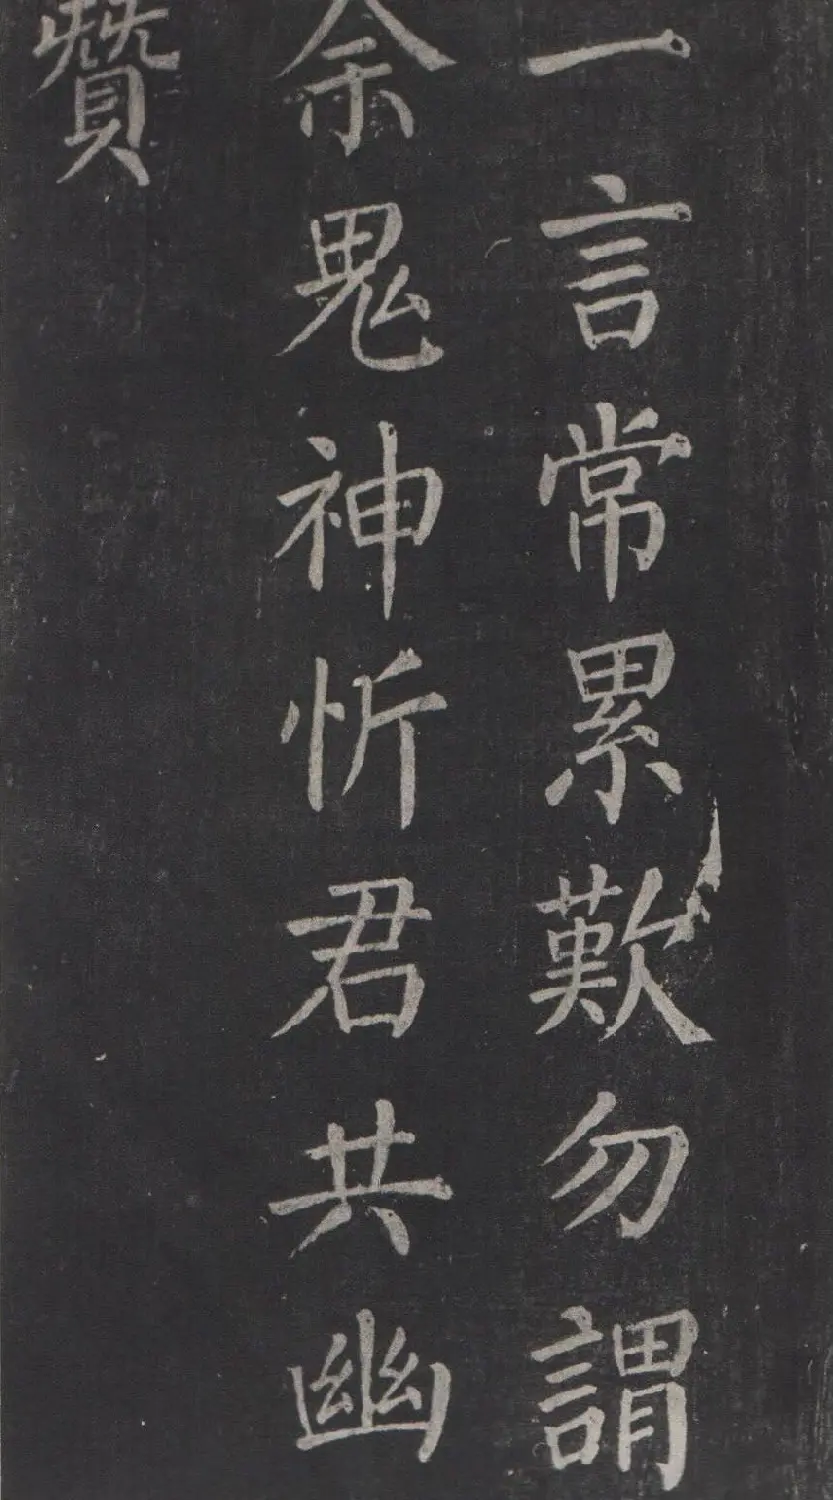 一言常累歎勿謂
余鬼神忻君共幽
贊